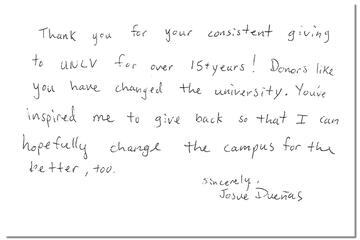 Thank you for your consistent giving
to UNLV for over 15+years! Donors like
you have changed the university. You've
inspired me to give back so that I can
hopefully change the campus for the
better, too.
sincerely,
Josue Dueñas